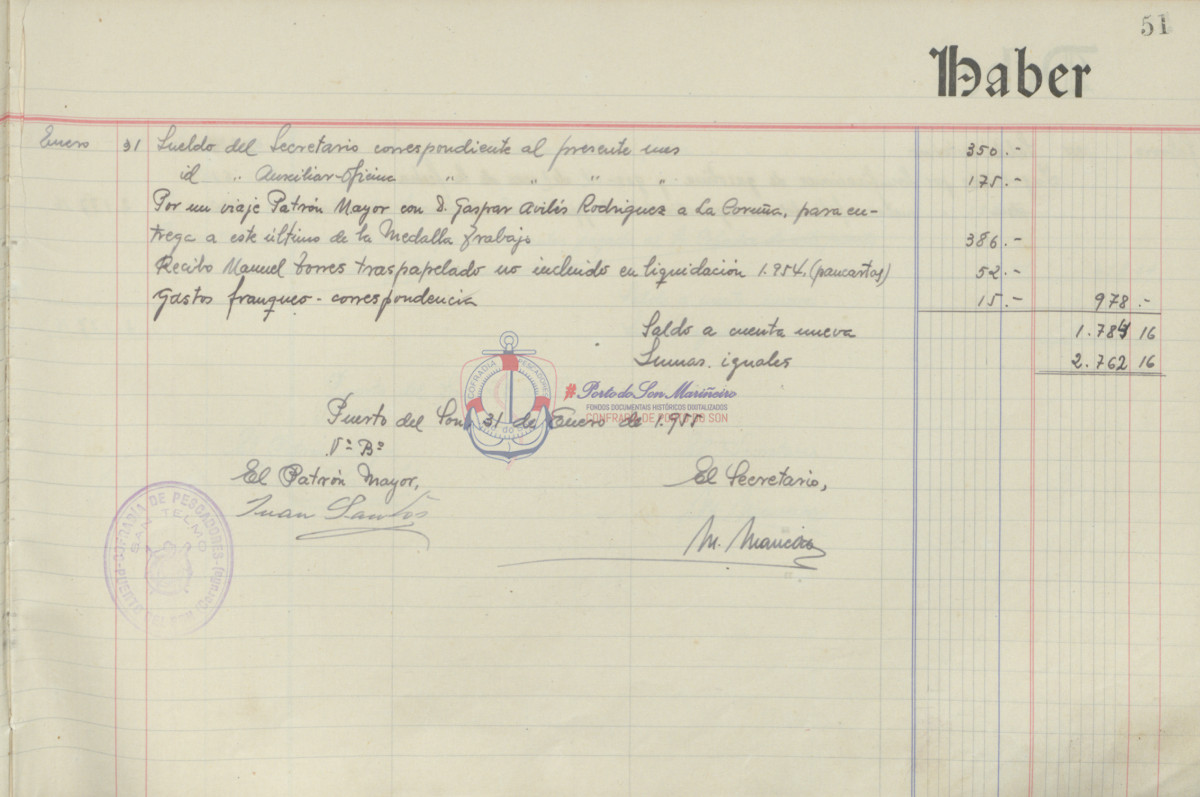 51
Haber
Enero 31 Sueldo del Secretario correspondiente al presente mes 350.-
id " Auxiliar-Oficina " " " " 175.-
Por un viaje Patrón Mayor con D. Gaspar Avilés Rodriguez a La Coruña, para en-
trega a este último de la Medalla Trabajo 386.-
Recibo Manuel Torres traspapelado no incluido en liquidación 1.954. (pancartas) 52.-
Gastos franqueo - correspondencia 15.- 978.-
Saldo a cuenta nueva 1.784 16
Sumas iguales 2.762 16
COFRADIA PESCADORES
#Porto do Son Mariñeiro
FONDOS DOCUMENTAIS HISTÓRICOS DIXITALIZADOS
CONFRARÍA DE PORTO DO SON
Puerto del Son 31 de Enero de 1.955
Vº Bº
El Patrón Mayor, El Secretario,
Juan Santos
M.
COFRADIA DE PESCADORES
SAN TELMO
PUERTO (Coruña)